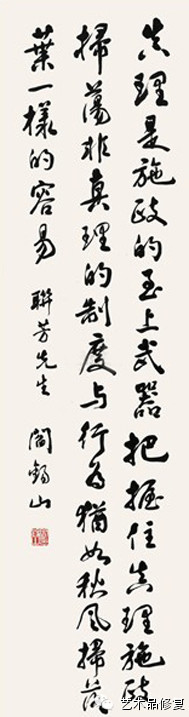 真理是施政的至上武器把握住真理施政
掃蕩非真理的制度与行为猶如秋风掃落
葉一樣的容易 聯芳先生 閻錫山
艺术品修复